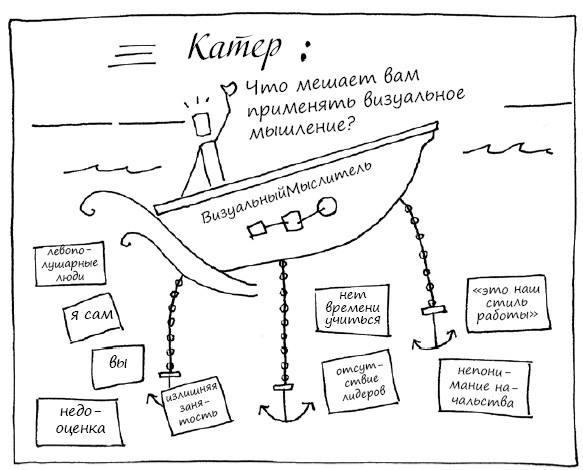 Катер :
Что мешает вам
применять визуальное
мышление?
ВизуальныйМыслитель
левопо-
лушарные
люди
я сам
вы
недо-
оценка
излишняя
заня-
тость
нет
времени
учиться
отсут-
ствие
лидеров
«это наш
стиль
работы»
непони-
мание на-
чальства